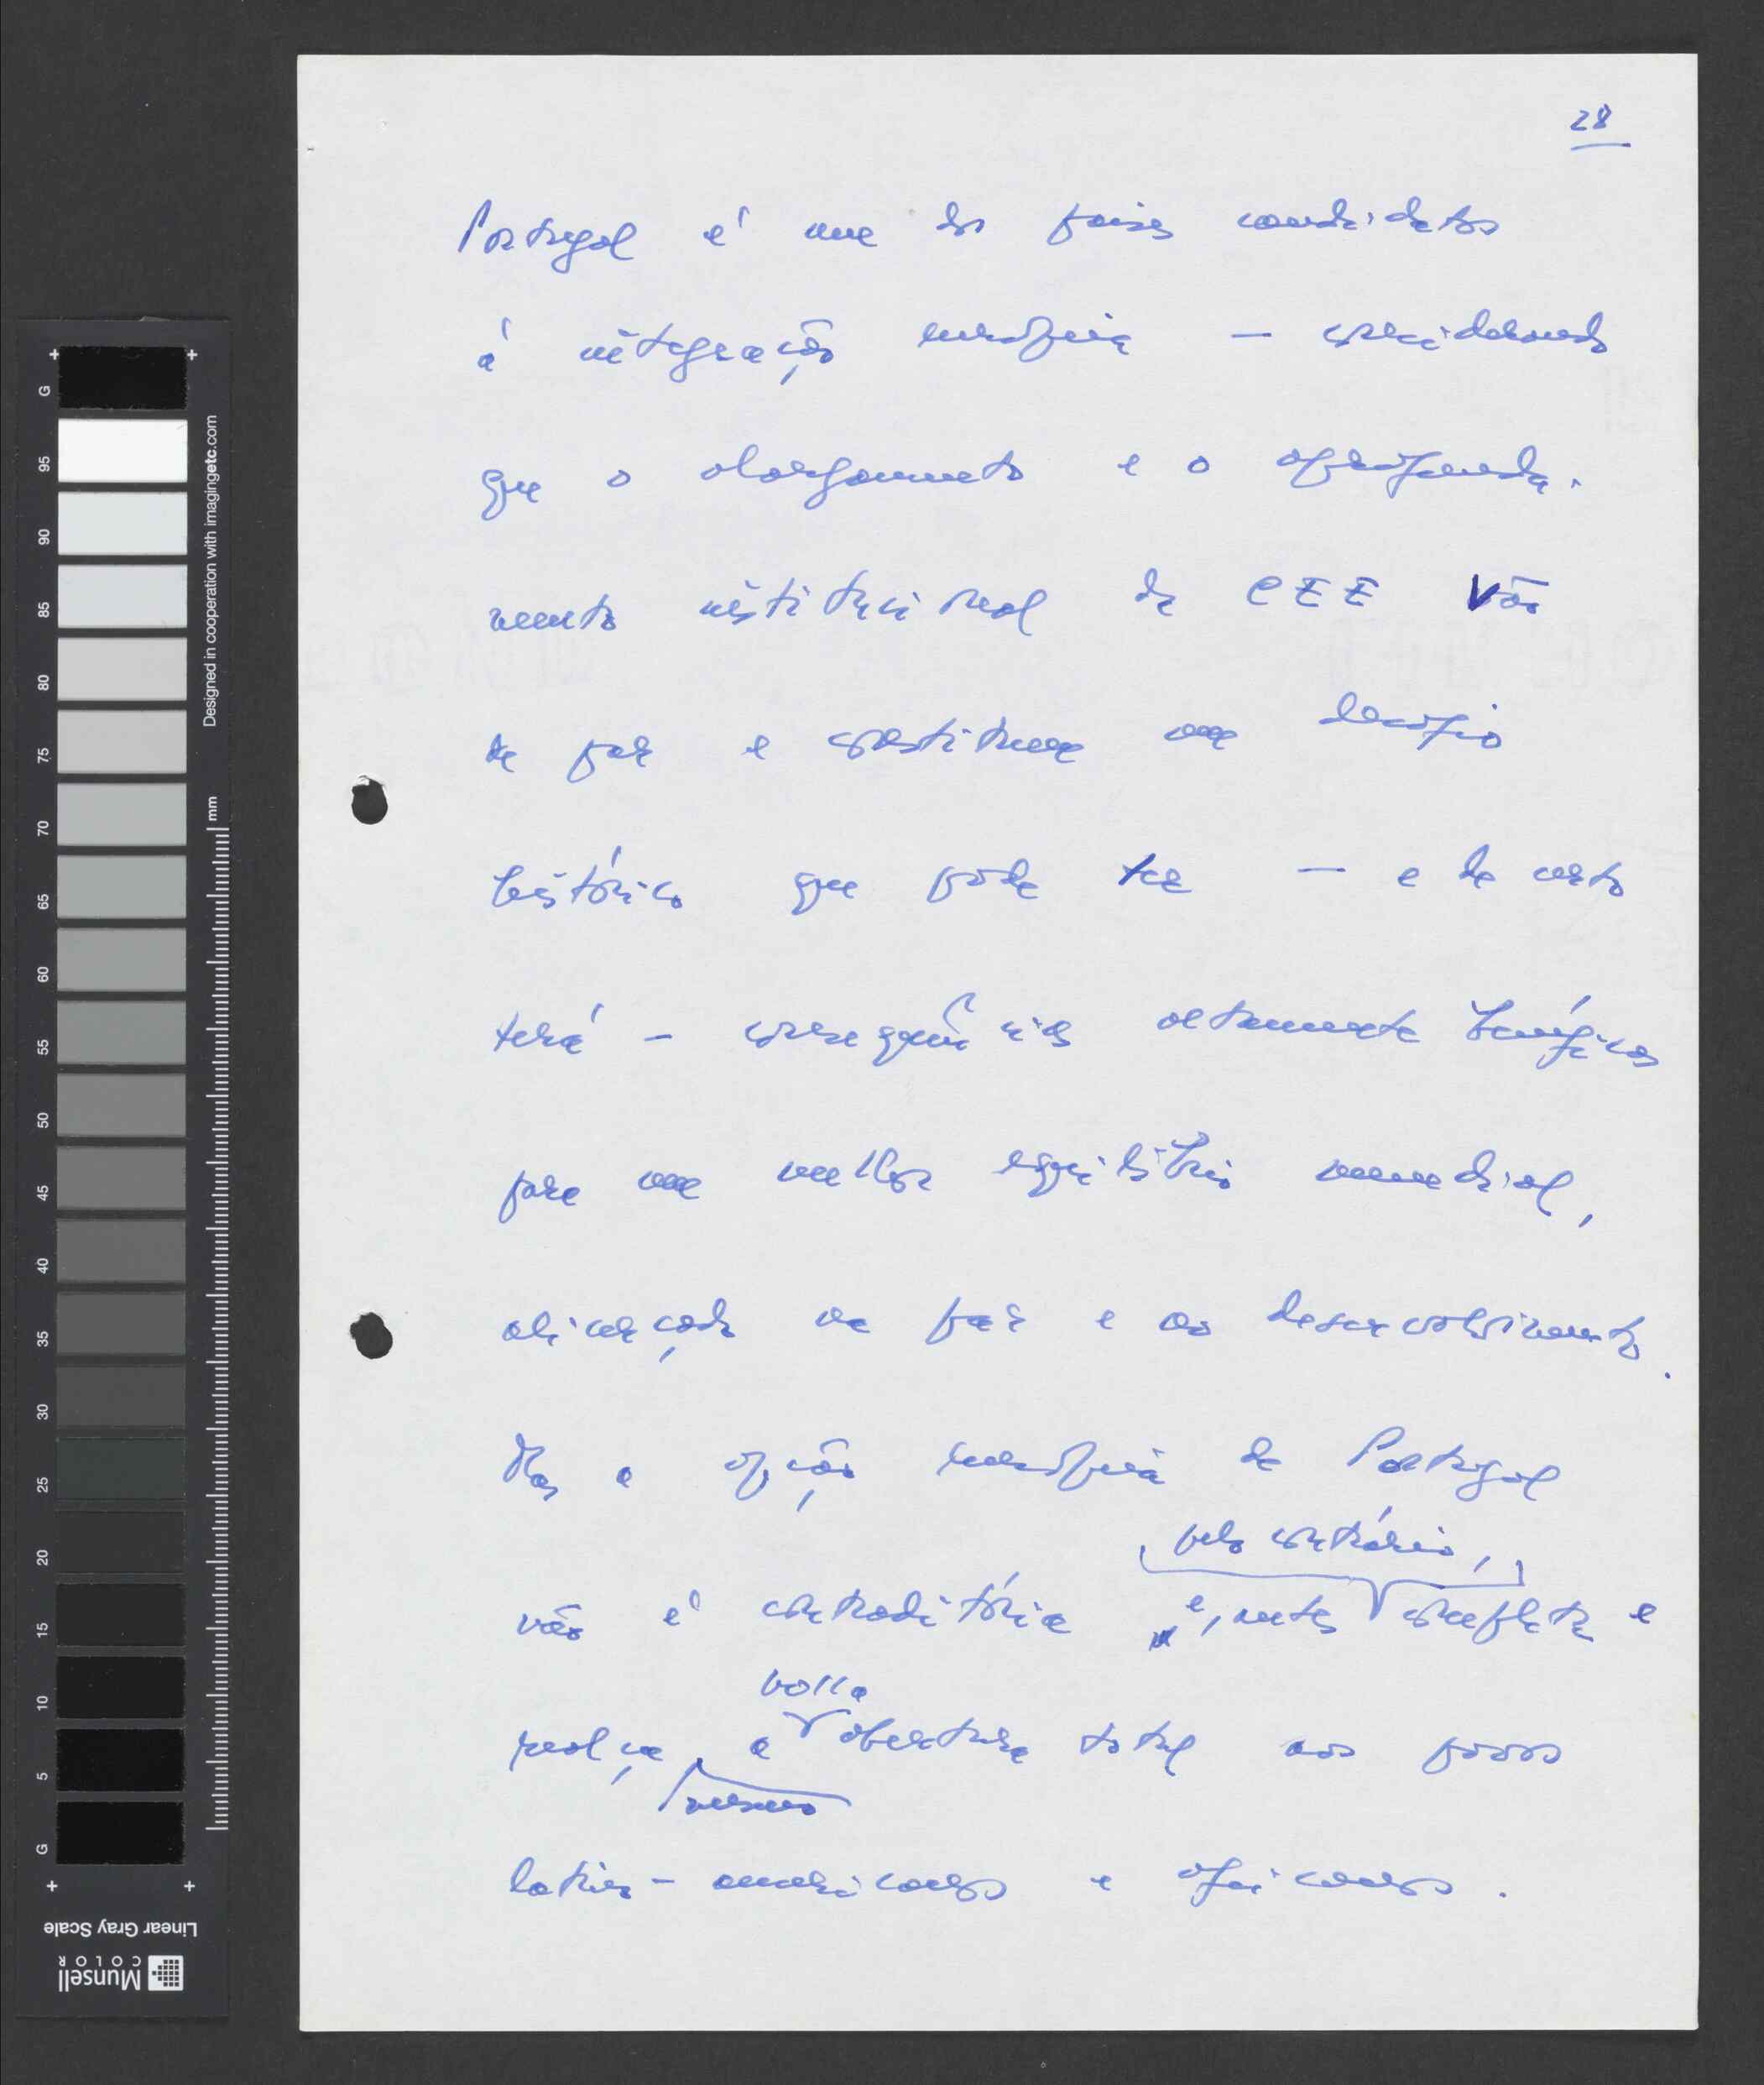 28
Portugal é um dos países candidatos
á integração europeia — considerando
que o alargamento e o aprofunda-
mento institucional da CEE vão
de par e constituem um desafio
histórico que pode ter — e de certo
terá — consequências altamente benéficas
para um melhor equilíbrio mundial,
alicerçado na paz e no desenvolvimento.
Mas a opção europeia de Portugal
pelo contrário,
não é contraditória e, antes completa e
nossa
realça, a abertura total aos povos
mesmo
latino-americanos e africanos.
G
95
90
85
80
75
70
65
60
55
50
45
40
35
30
25
20
15
10
5
G
Designed in cooperation with imagingetc.com
mm
Linear Gray Scale
Munsell
COLOR